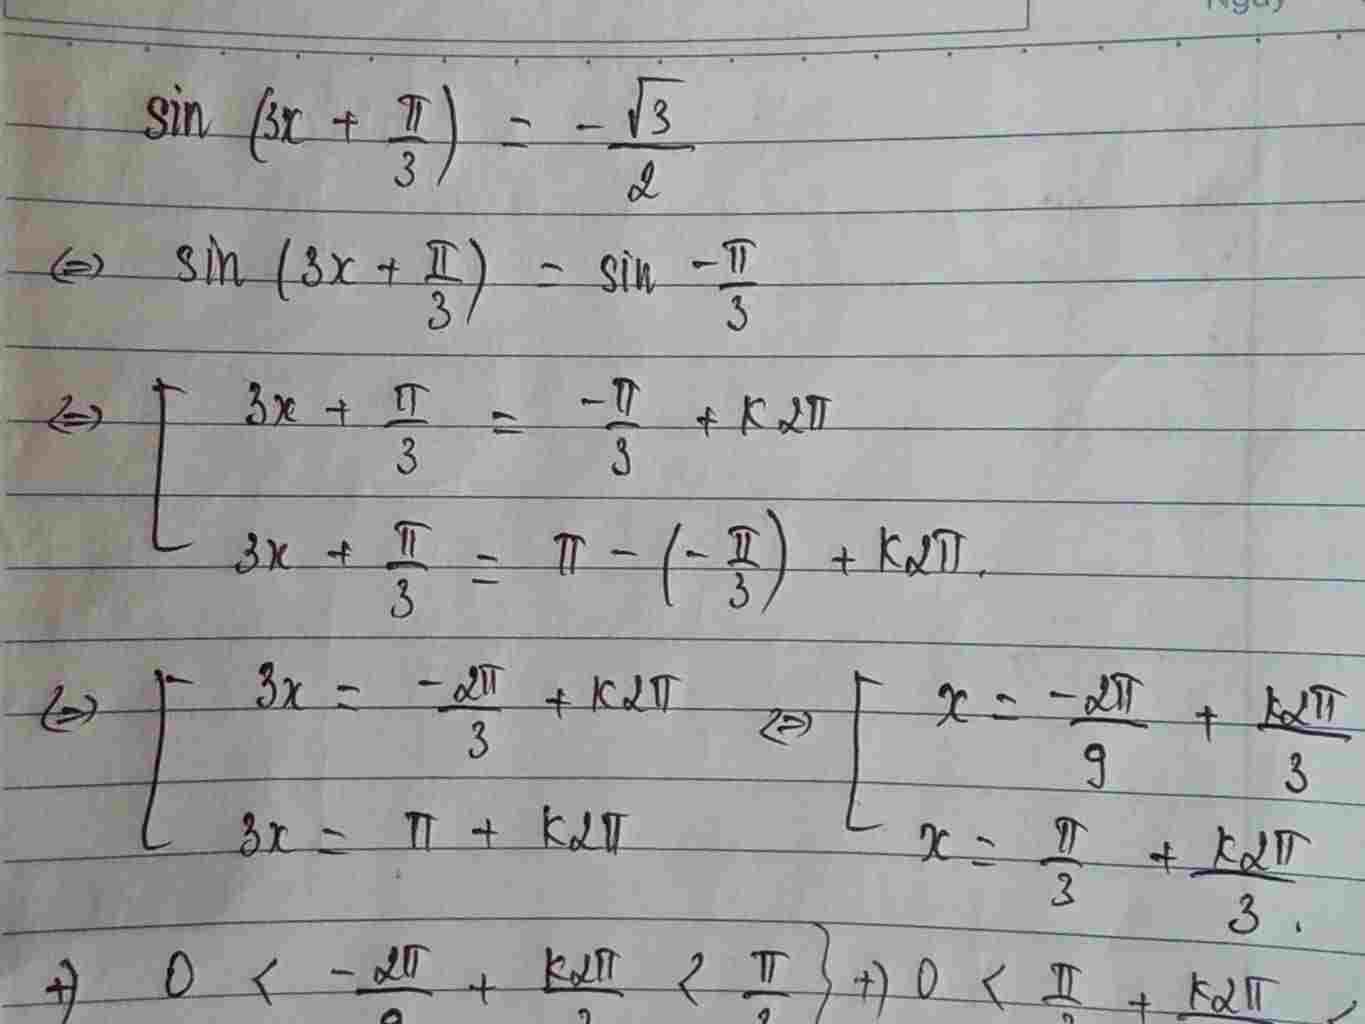 Ngày
sin (3x + π/3) = - √3/2
⇔ sin (3x + π/3) = sin -π/3
⇔ [ 3x + π/3 = -π/3 + K2π
3x + π/3 = π - (-π/3) + K2π.
⇔ [ 3x = -2π/3 + K2π ⇔ [ x = -2π/9 + K2π/3
3x = π + K2π x = π/3 + K2π/3.
+) 0 < -2π/9 + K2π/3 < π } +) 0 < π/3 + K2π/3 <